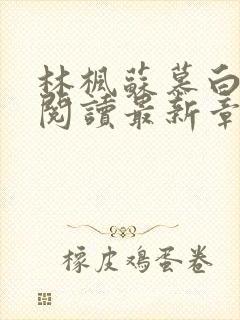 林楓蘇慕白
閱讀最新章
橡皮鸡蛋卷